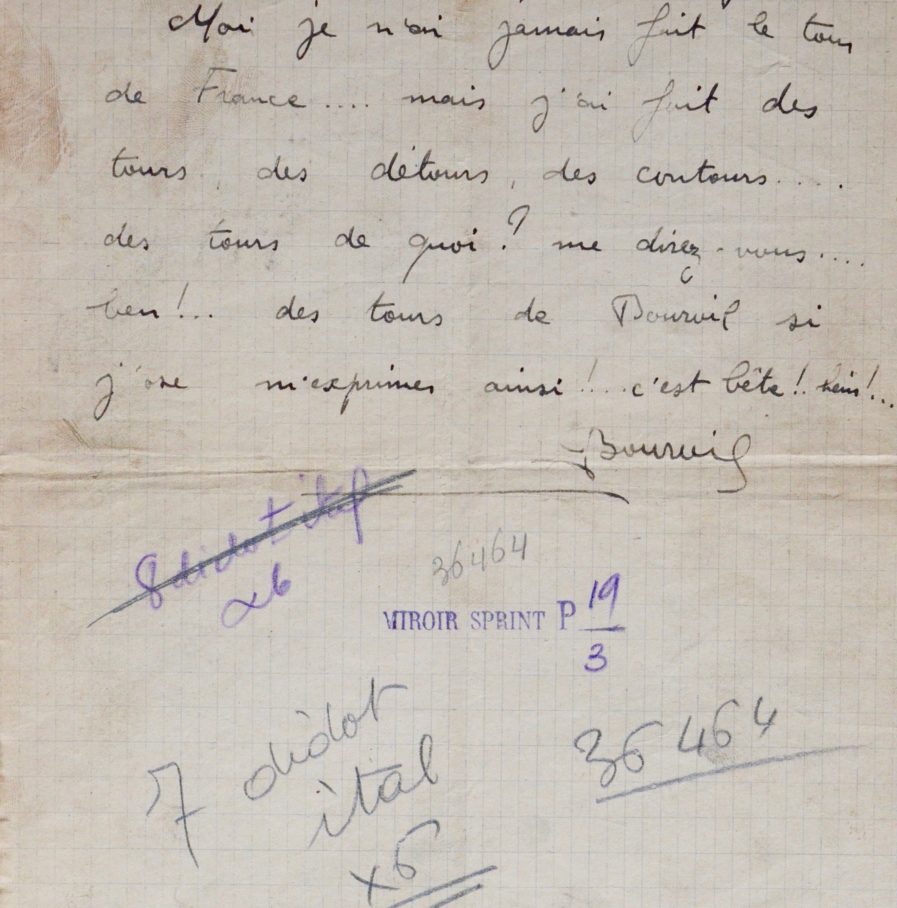 Moi je n'ai jamais fait le tour
de France .... mais j'ai fait des
tours, des détours, des contours....
des tours de quoi ? me direz-vous....
ben !... des tours de Bourvil si
j'ose m'exprimer ainsi !... c'est bête !.. hein !...
Bourvil
8 didot ital
x6
36464
MIROIR SPRINT P 19
3
7 didot
ital
x6
36464